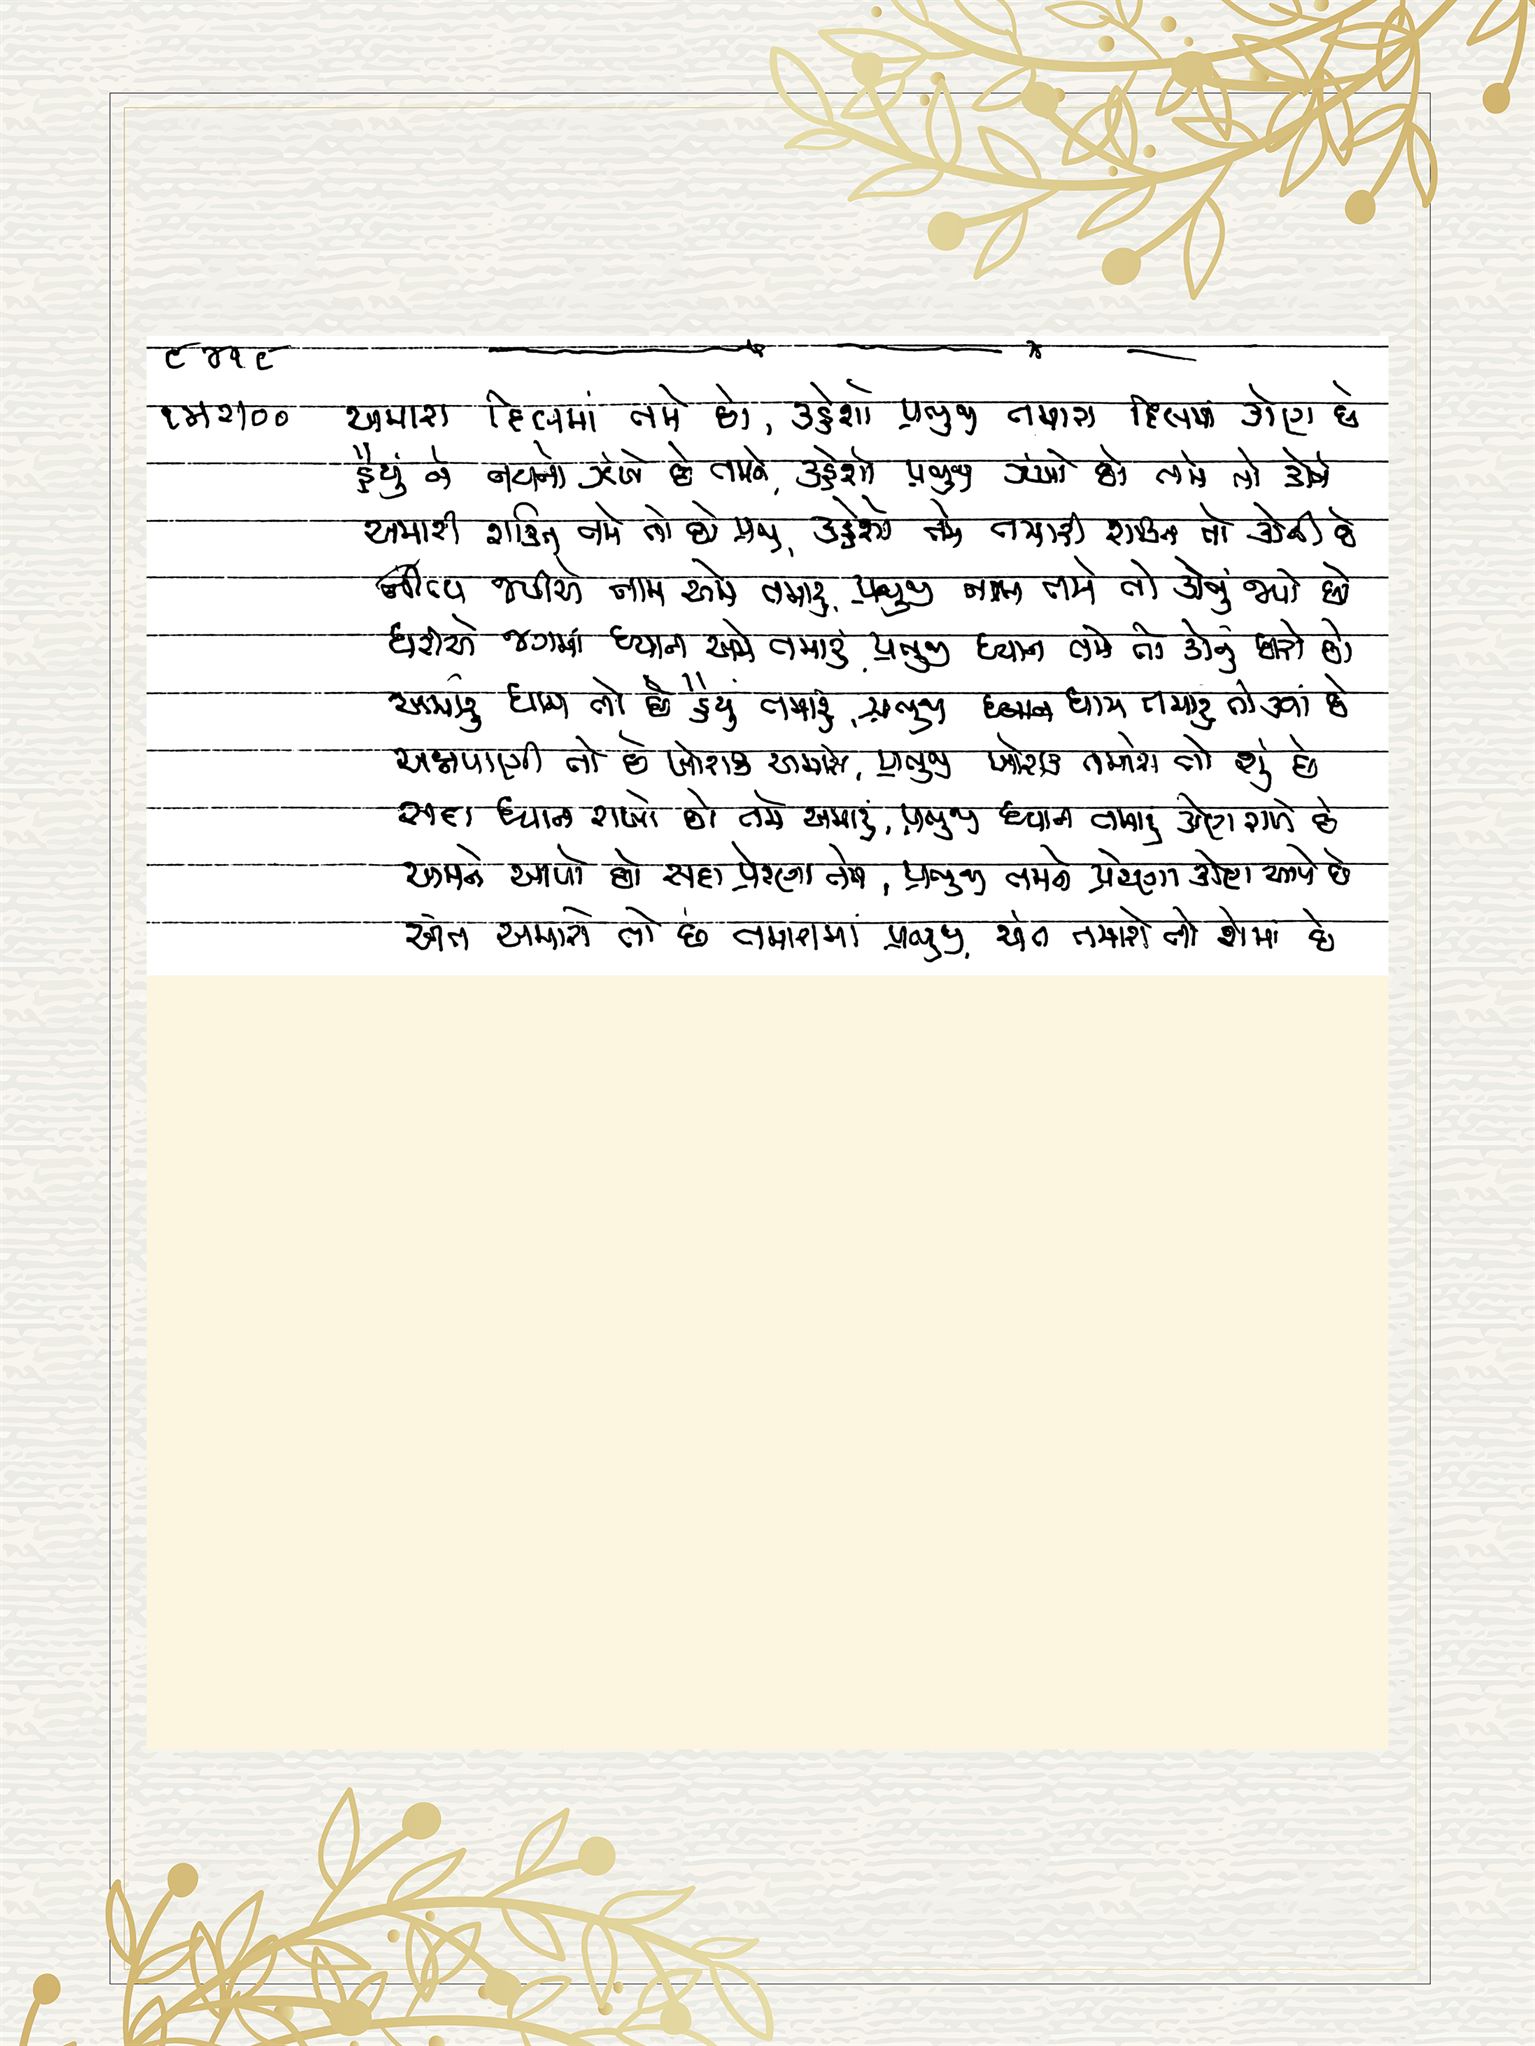 ૯૪૧૯
અમારા દિલમાં તમે છો, કહેશો પ્રભુજી તમારા દિલમાં કોણ છે
હૈયું ને નયનો ઝંખે છે તમને, કહેશો પ્રભુજી ઝંખો છો તમે તો કોને
અમારી શક્તિ તમે તો છો પ્રભુ, કહેશો તમે તમારી શક્તિ તો કોની છે
નિત્ય જપીએ નામ અમે તમારું, પ્રભુજી નામ તમે તો કોનું જપો છો
ધરીએ જગમાં ધ્યાન અમે તમારું, પ્રભુજી ધ્યાન તમે તો કોનું ધરો છો
અમારું ધામ તો છે હૈયું તમારું, પ્રભુજી ધામ તમારું તો ક્યાં છે
અન્નપાણી તો છે ખોરાક અમારો, પ્રભુજી ખોરાક તમારો તો શું છે
સદા ધ્યાન રાખો છો તમે અમારું, પ્રભુજી ધ્યાન તમારું કોણ રાખે છે
અમને આપો છો સદા પ્રેરણા તમે, પ્રભુજી તમને પ્રેરણા કોણ આપે છે
અંત અમારો તો છે તમારામાં પ્રભુજી, અંત તમારો તો શેમાં છે